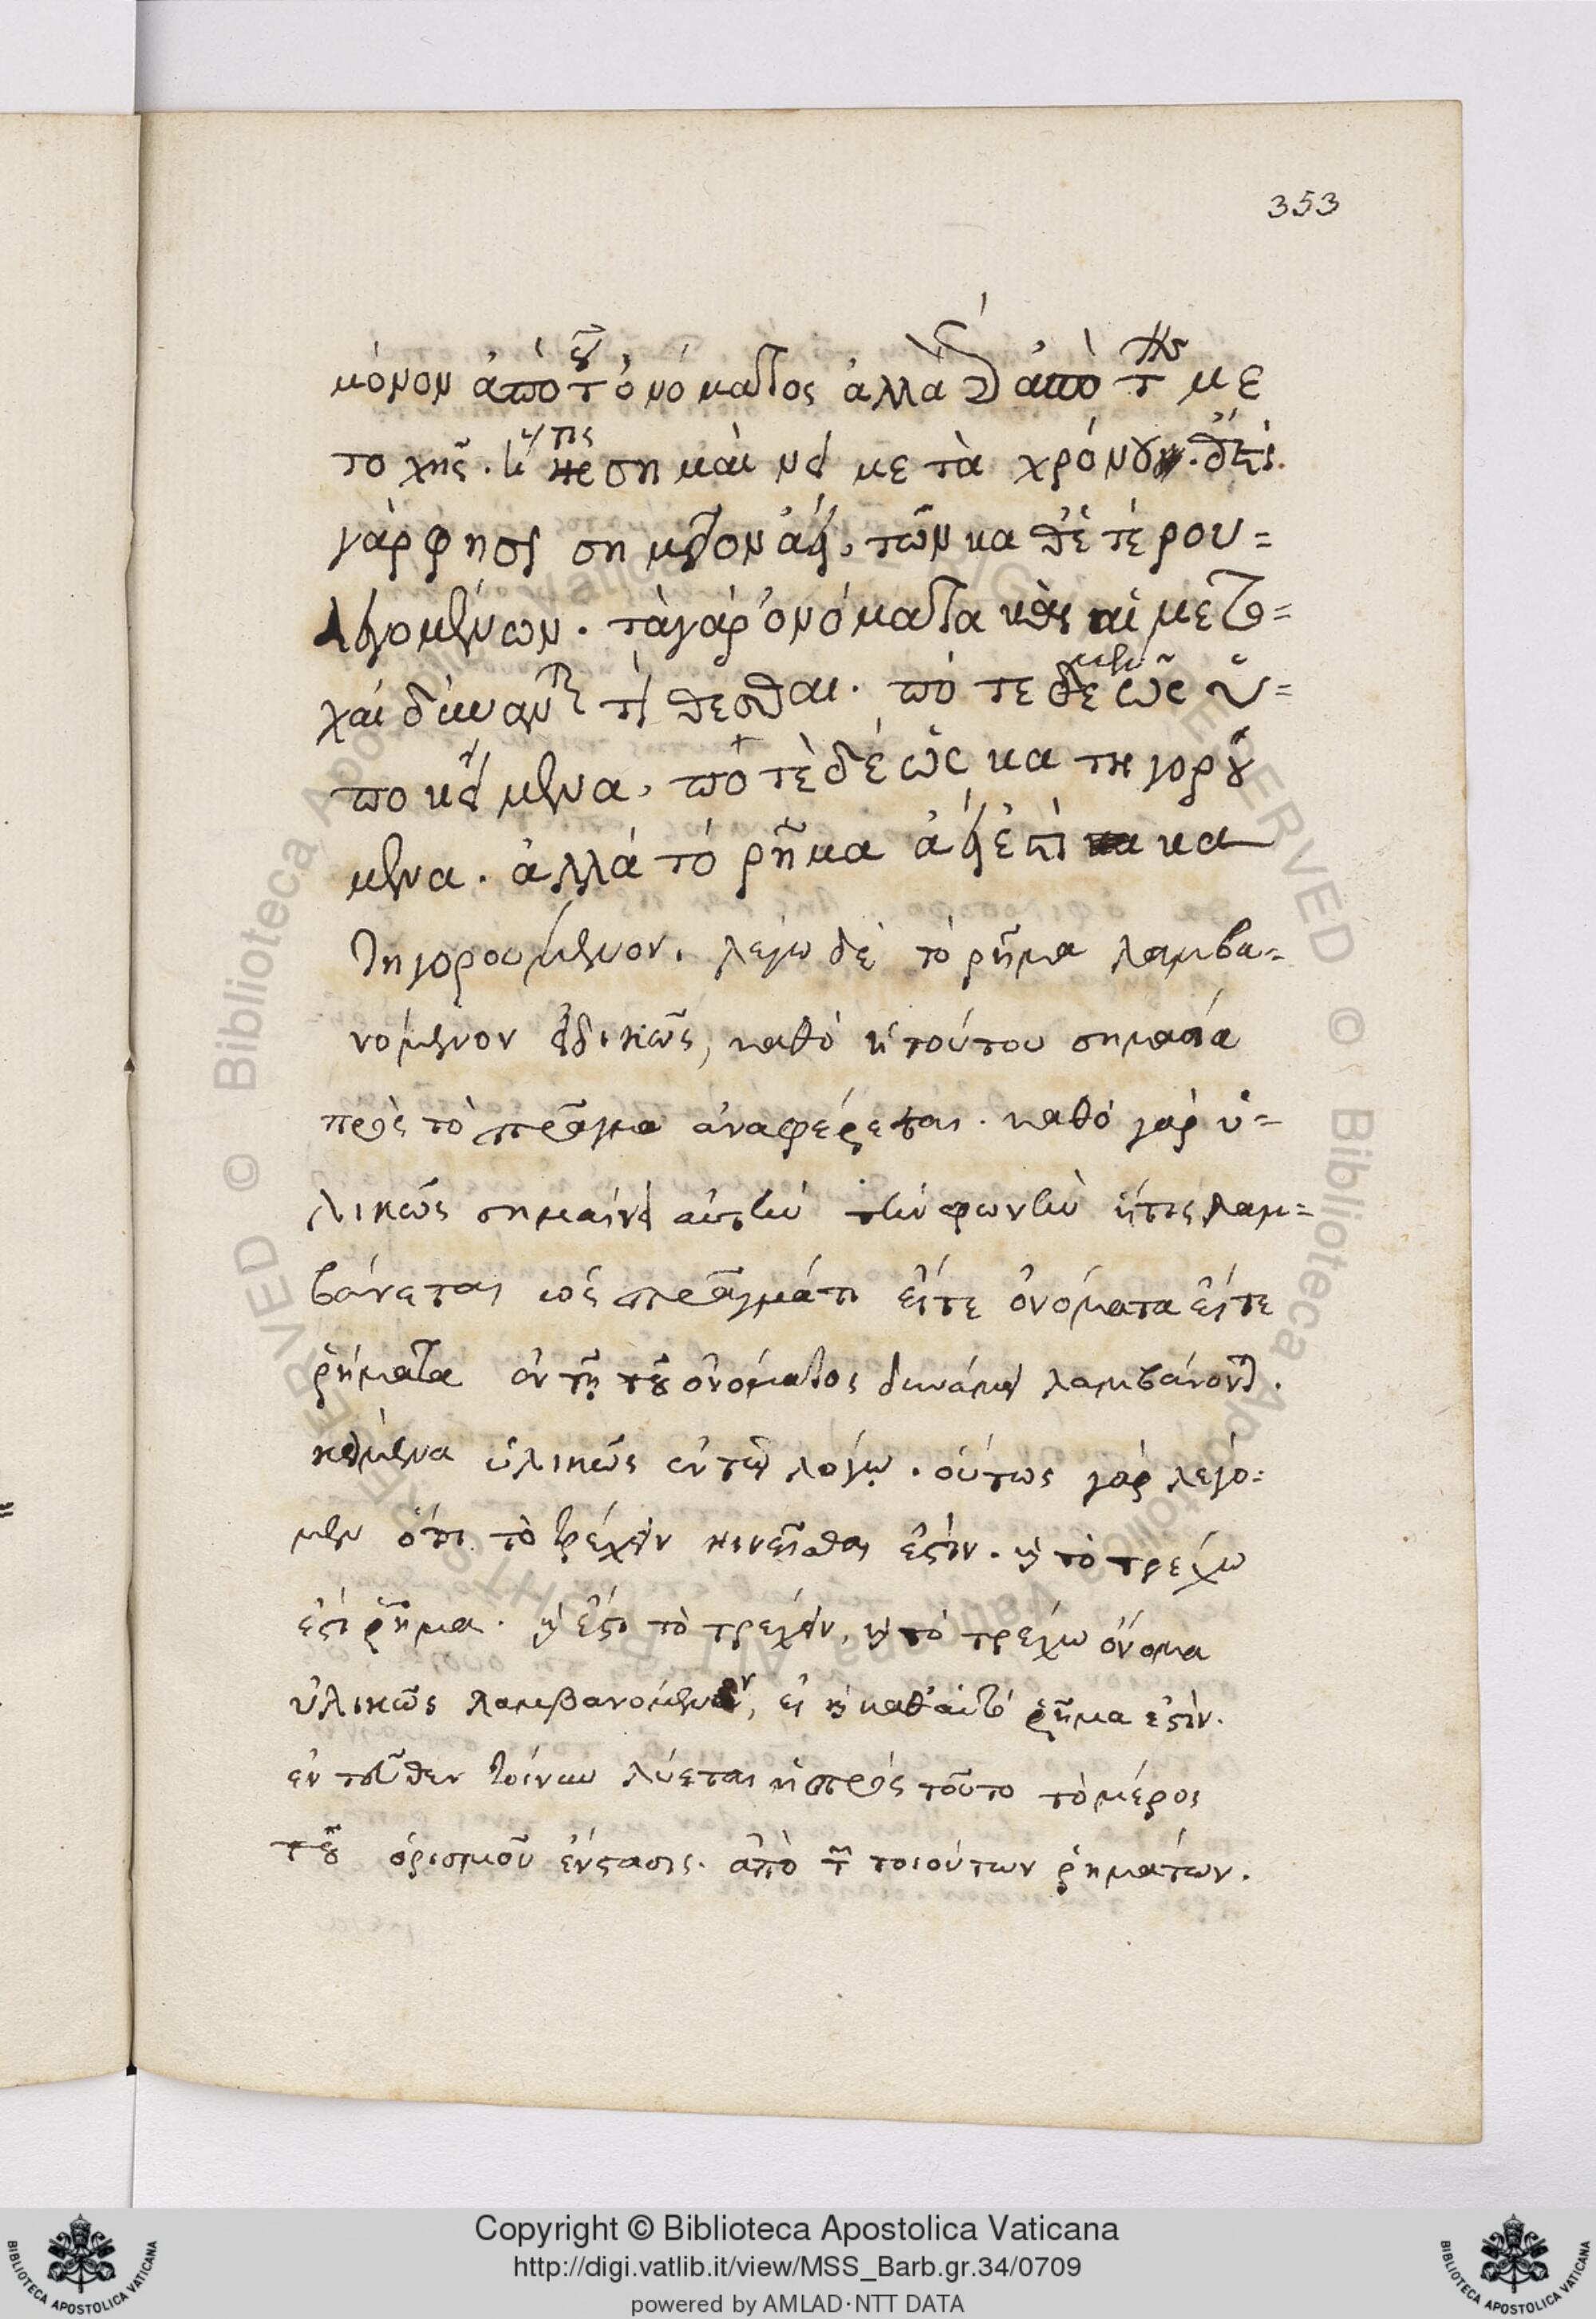 353
μόνον ἀπὸ τοῦ ὀνόματος ἀλλὰ καὶ ἀπὸ τῆς με
τοχῆς. ἥτις σημαίνει μετὰ χρόνου. ἔτι
γάρ φησι σημεῖον ἀεὶ, τῶν καθ' ἑτέρου =
λεγομένων. τὰ γὰρ ὀνόματα καὶ αἱ μετο =
χαὶ δύνανται τίθεσθαι. ποτὲ μὲν ὡς ὑ =
ποκείμενα, ποτὲ δὲ ὡς κατηγορού
μενα. ἀλλὰ τὸ ῥῆμα ἀεὶ ἐστὶ κα
τηγορούμενον. λέγω δὲ τὸ ῥῆμα λαμβα =
νόμενον εἰδικῶς, καθὸ ἡ τούτου σημασία
πρὸς τὸ πρᾶγμα ἀναφέρεται. καθὸ γὰρ ὑ =
λικῶς σημαίνει αὐτὴν τὴν φωνὴν ἥτις λαμ =
βάνεται ὡς πρᾶγμά τι εἴτε ὀνόματα εἴτε
ῥήματα ἐν τῇ τοῦ ὀνόματος δυνάμει λαμβάνονται.
κείμενα ὑλικῶς ἐν τῷ λόγῳ. οὕτως γὰρ λέγο =
μεν ὅτι τὸ τρέχειν κινεῖσθαι ἐστίν. καὶ τὸ τρέχω
ἐστὶ ῥῆμα. καὶ ἔστι τὸ τρέχειν, καὶ τὸ τρέχω ὄνομα
ὑλικῶς λαμβανόμενον, εἰ καὶ καθ' αὑτὸ ῥῆμα ἐστίν.
ἐντεῦθεν τοίνυν λύεται ἡ πρὸς τοῦτο τὸ μέρος
τοῦ ὁρισμοῦ ἔνστασις. ἀπὸ τῶν τοιούτων ῥημάτων.
Copyright © Biblioteca Apostolica Vaticana
http://digi.vatlib.it/view/MSS_Barb.gr.34/0709
powered by AMLAD·NTT DATA
BIBLIOTECA APOSTOLICA VATICANA
BIBLIOTECA APOSTOLICA VATICANA